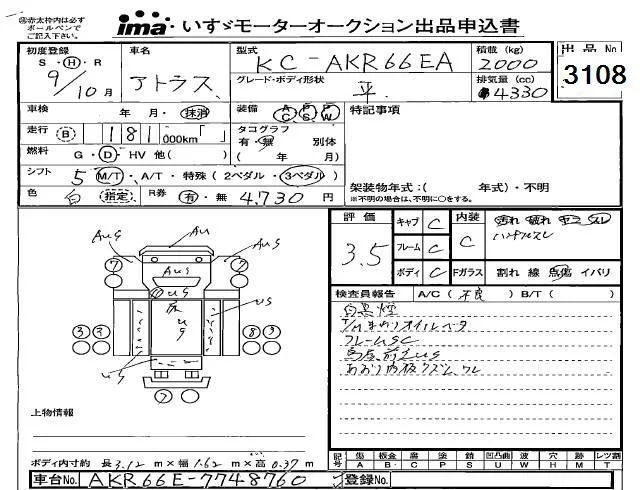 ㊟赤太枠内は必ず
ボールペンで
ご記入下さい。
ima・いすゞモーターオークション出品申込書
初度登録 車名 型式 積載 (kg) 出品 No
S・H・R アトラス KC-AKR66EA 2000 3108
9/10月 グレード・ボディ形状 平 排気量 (cc) 4330
車検 年 月・抹消 装備 AC PS PW 特記事項
走行 B 181000km「 」 タコグラフ 有・無 別体
燃料 G・D・HV 他( ) ( 年 月)
シフト 5 M/T・A/T・特殊 (2ペダル・3ペダル)
架装物年式:( 年式)・不明
※不明の場合は、不明に○をする。
色 白 指定 R券 有・無 4,730円
評価 3.5 キャブ C 内装 C 汚れ 破れ コゲ スレ
フレーム C ハンドルスレ
ボディ C Fガラス 割れ 線 点傷 イバリ
AuS Au AuS
AuS
uS uS
uS
7 7
3 3 8 3
7
検査員報告 A/C(不良) B/T( )
白黒煙
T/Mまわりオイルベタ
フレームSC
あおり内板クズレ ワレ
上物情報
ボディ内寸約 長3.12m×幅1.62m×高0.37m
記号 傷A 板金B 腐C 塗P 錆S 凹凸曲U 波W 穴H 欠M レツ割T
車台No. AKR66E-7748760 登録No.